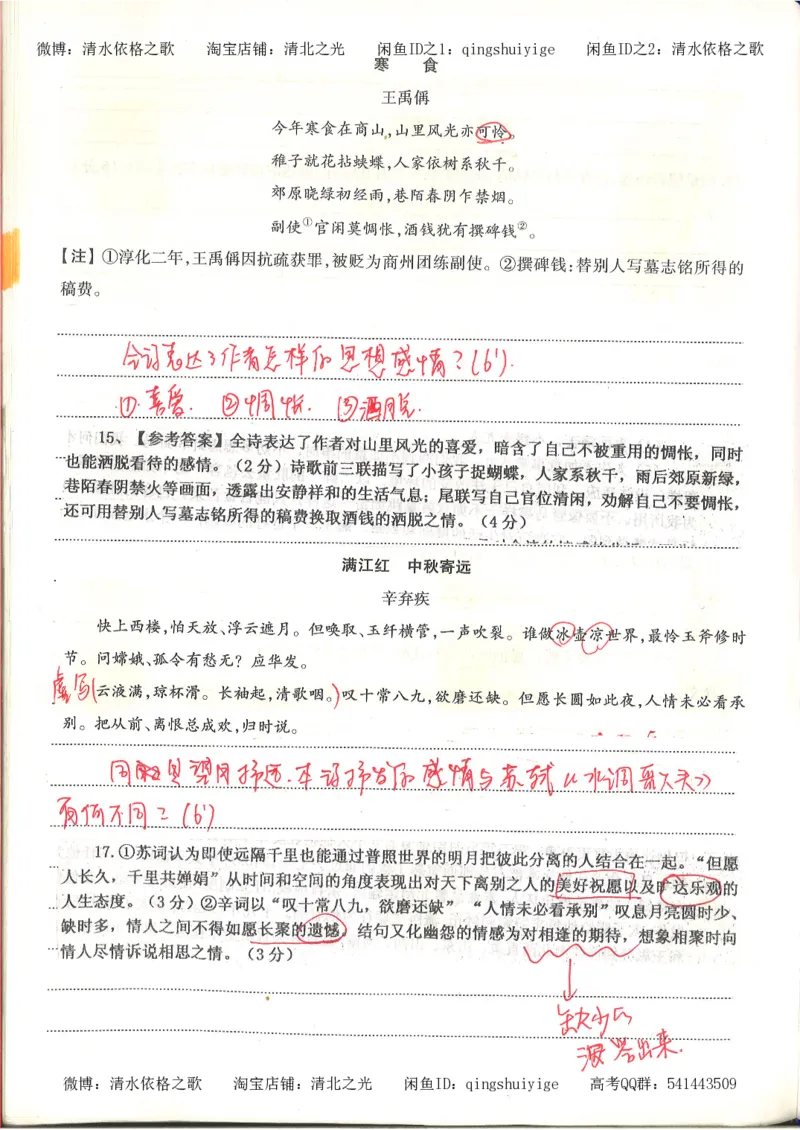 微博：清水依格之歌　淘宝店铺：清北之光　闲鱼ID之1：qingshuiyige　闲鱼ID之2：清水依格之歌
寒　食
王禹偁
今年寒食在商山，山里风光亦可怜。
稚子就花拈蛱蝶，人家依树系秋千。
郊原晓绿初经雨，巷陌春阴乍禁烟。
副使①官闲莫惆怅，酒钱犹有撰碑钱②。
【注】①淳化二年，王禹偁因抗疏获罪，被贬为商州团练副使。②撰碑钱：替别人写墓志铭所得的
稿费。
全诗表达了作者怎样的思想感情？(6')．
①．喜爱．　②惆怅．　③洒脱．
15、【参考答案】全诗表达了作者对山里风光的喜爱，暗含了自己不被重用的惆怅，同时
也能洒脱看待的感情。（2 分）诗歌前三联描写了小孩子捉蝴蝶，人家系秋千，雨后郊原新绿，
巷陌春阴禁火等画面，透露出安静祥和的生活气息；尾联写自己官位清闲，劝解自己不要惆怅，
还可用替别人写墓志铭所得的稿费换取酒钱的洒脱之情。（4 分）
满江红　中秋寄远
辛弃疾
快上西楼，怕天放、浮云遮月。但唤取、玉纤横管，一声吹裂。谁做冰壶凉世界，最怜玉斧修时
节。问嫦娥、孤令有愁无？应华发。
虚写(云液满，琼杯滑。长袖起，清歌咽。)叹十常八九，欲磨还缺。但愿长圆如此夜，人情未必看承
别。把从前、离恨总成欢，归时说。
同是望月抒怀．本词抒发的感情与苏轼《水调歌头》
有何不同？(6')
17.①苏词认为即使远隔千里也能通过普照世界的明月把彼此分离的人结合在一起。“但愿
人长久，千里共婵娟”从时间和空间的角度表现出对天下离别之人的美好祝愿以及旷达乐观的
人生态度。（3 分）②辛词以“叹十常八九，欲磨还缺”“人情未必看承别”叹息月亮圆时少、
缺时多，情人之间不得如愿长聚的遗憾。结句又化幽怨的情感为对相逢的期待，想象相聚时向
情人尽情诉说相思之情。（3 分）
缺少的
没答出来．
微博：清水依格之歌　淘宝店铺：清北之光　闲鱼ID：qingshuiyige　高考QQ群：541443509